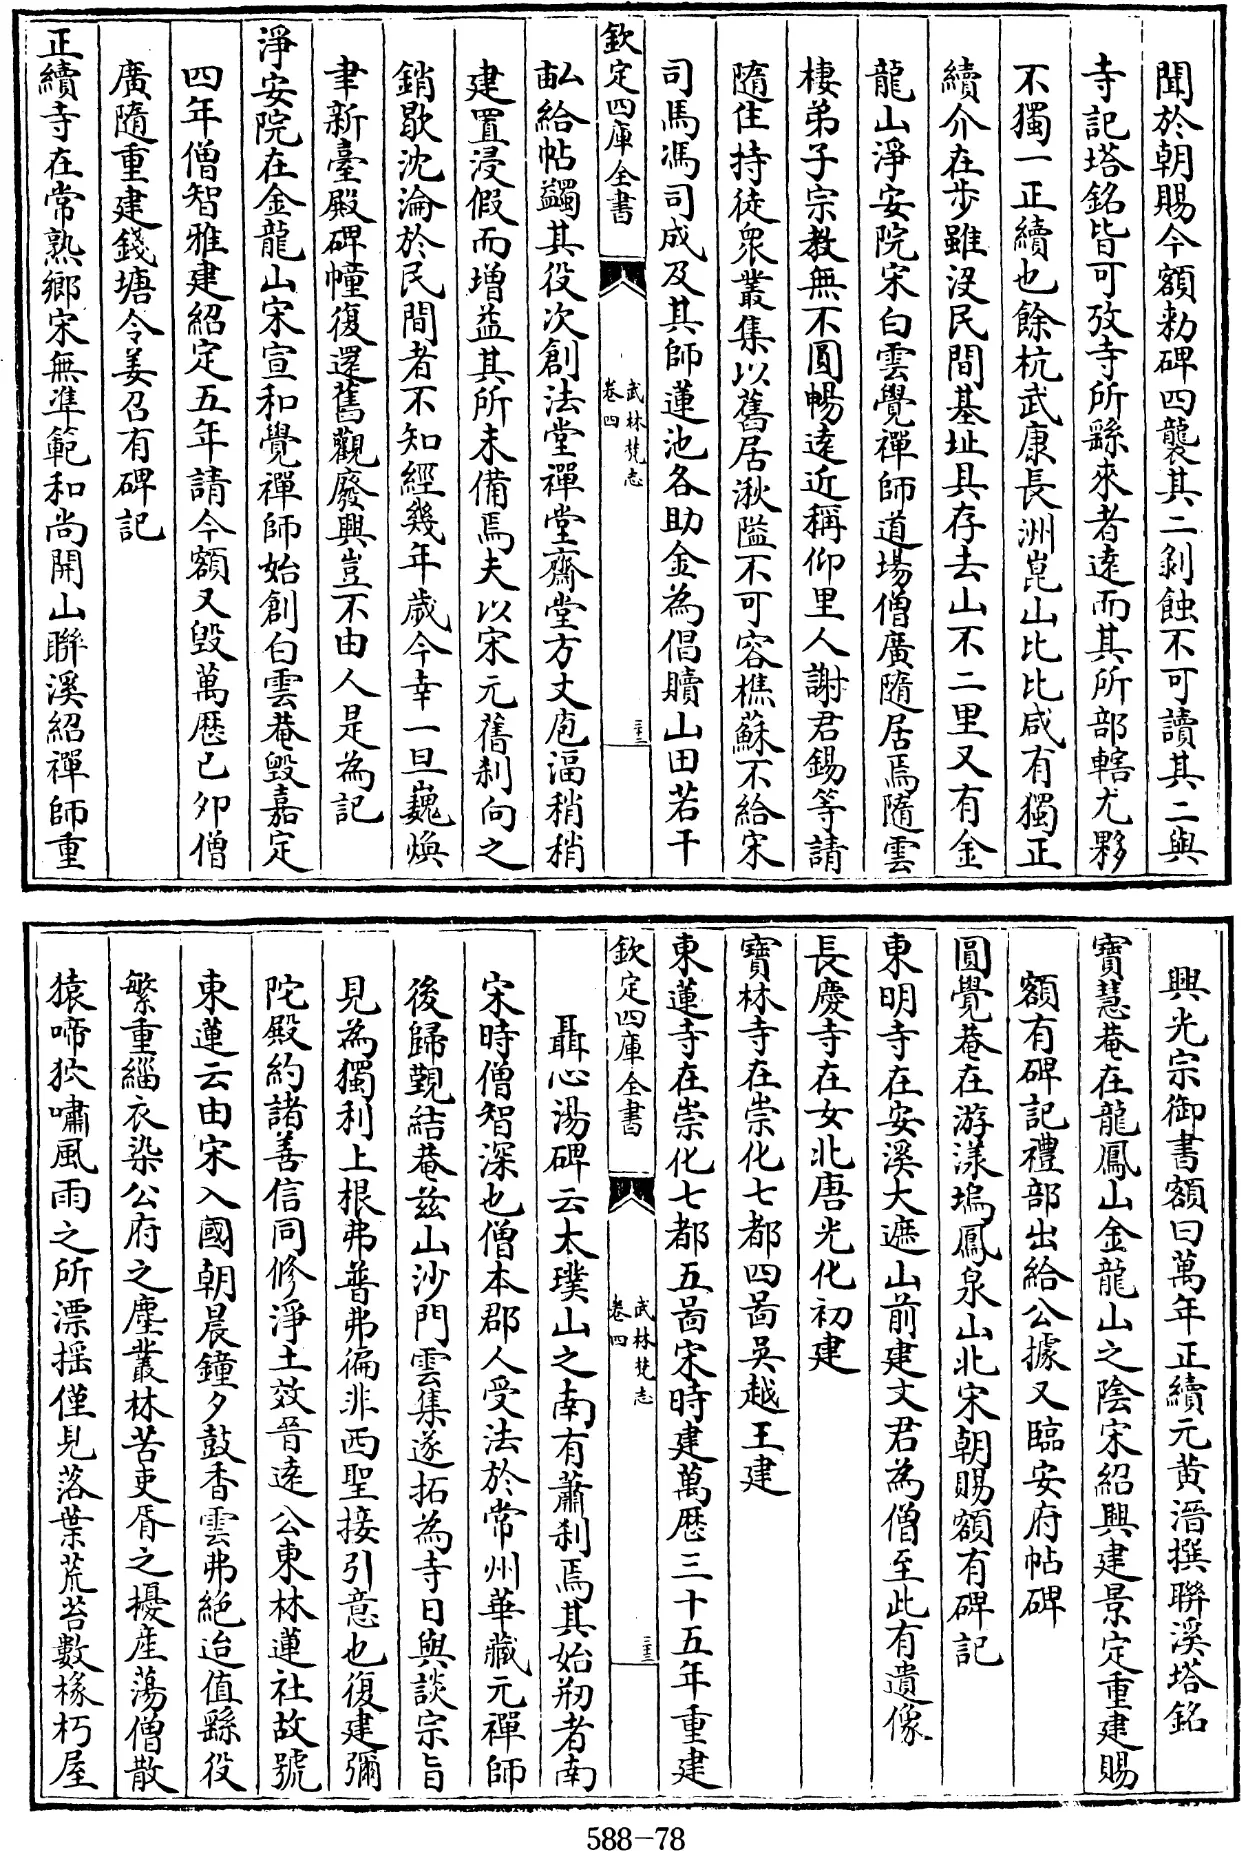 聞於朝賜今額勅碑四襲其二剝蝕不可讀其二與
寺記塔銘皆可攷寺所繇來者逺而其所部轄尤夥
不獨一正續也餘杭武康長洲崑山比比咸有獨正
續介在歩雖沒民間基址具存去山不二里又有金
龍山淨安院宋白雲覺禪師道場僧廣隨居焉隨雲
棲弟子宗教無不圓暢逺近稱仰里人謝君錫等請
隨住持徒衆叢集以舊居湫隘不可容樵蘇不給宋
司馬馮司成及其師蓮池各助金為倡贖山田若干
欽定四庫全書
武林梵志
卷四
三十二
畝給帖蠲其役次創法堂禪堂齋堂方丈庖湢稍稍
建置浸假而增益其所未備焉夫以宋元舊刹向之
銷歇沈淪於民間者不知經幾年歳今幸一旦巍煥
聿新臺殿碑幢復還舊觀廢興豈不由人是為記
淨安院在金龍山宋宣和覺禪師始創白雲菴毁嘉定
四年僧智雅建紹定五年請今額又毁萬歴己夘僧
廣隨重建錢塘令姜召有碑記
正續寺在常熟鄉宋無準範和尚開山聯溪紹禪師重
興光宗御書額曰萬年正續元黄溍撰聨溪塔銘
寳慧菴在龍鳳山金龍山之陰宋紹興建景定重建賜
額有碑記禮部出給公據又臨安府帖碑
圓覺菴在游漾塢鳳泉山北宋朝賜額有碑記
東明寺在安溪大遮山前建文君為僧至此有遺像
長慶寺在女北唐光化初建
寳林寺在崇化七都四啚吳越王建
東蓮寺在崇化七都五啚宋時建萬歴三十五年重建
欽定四庫全書
武林梵志
卷四
三十三
聶心湯碑云太璞山之南有蕭刹焉其始刱者南
宋時僧智深也僧本郡人受法於常州華藏元禪師
後歸覲結菴兹山沙門雲集遂拓為寺日與談宗旨
見為獨利上根弗普弗徧非西聖接引意也復建彌
陀殿約諸善信同修淨土效晉逺公東林蓮社故號
東蓮云由宋入國朝晨鐘夕鼓香雲弗絶迨值繇役
繁重緇衣染公府之塵叢林苦吏胥之擾産蕩僧散
猿啼狖嘯風雨之所漂揺僅見落葉荒苔數椽朽屋
588-78